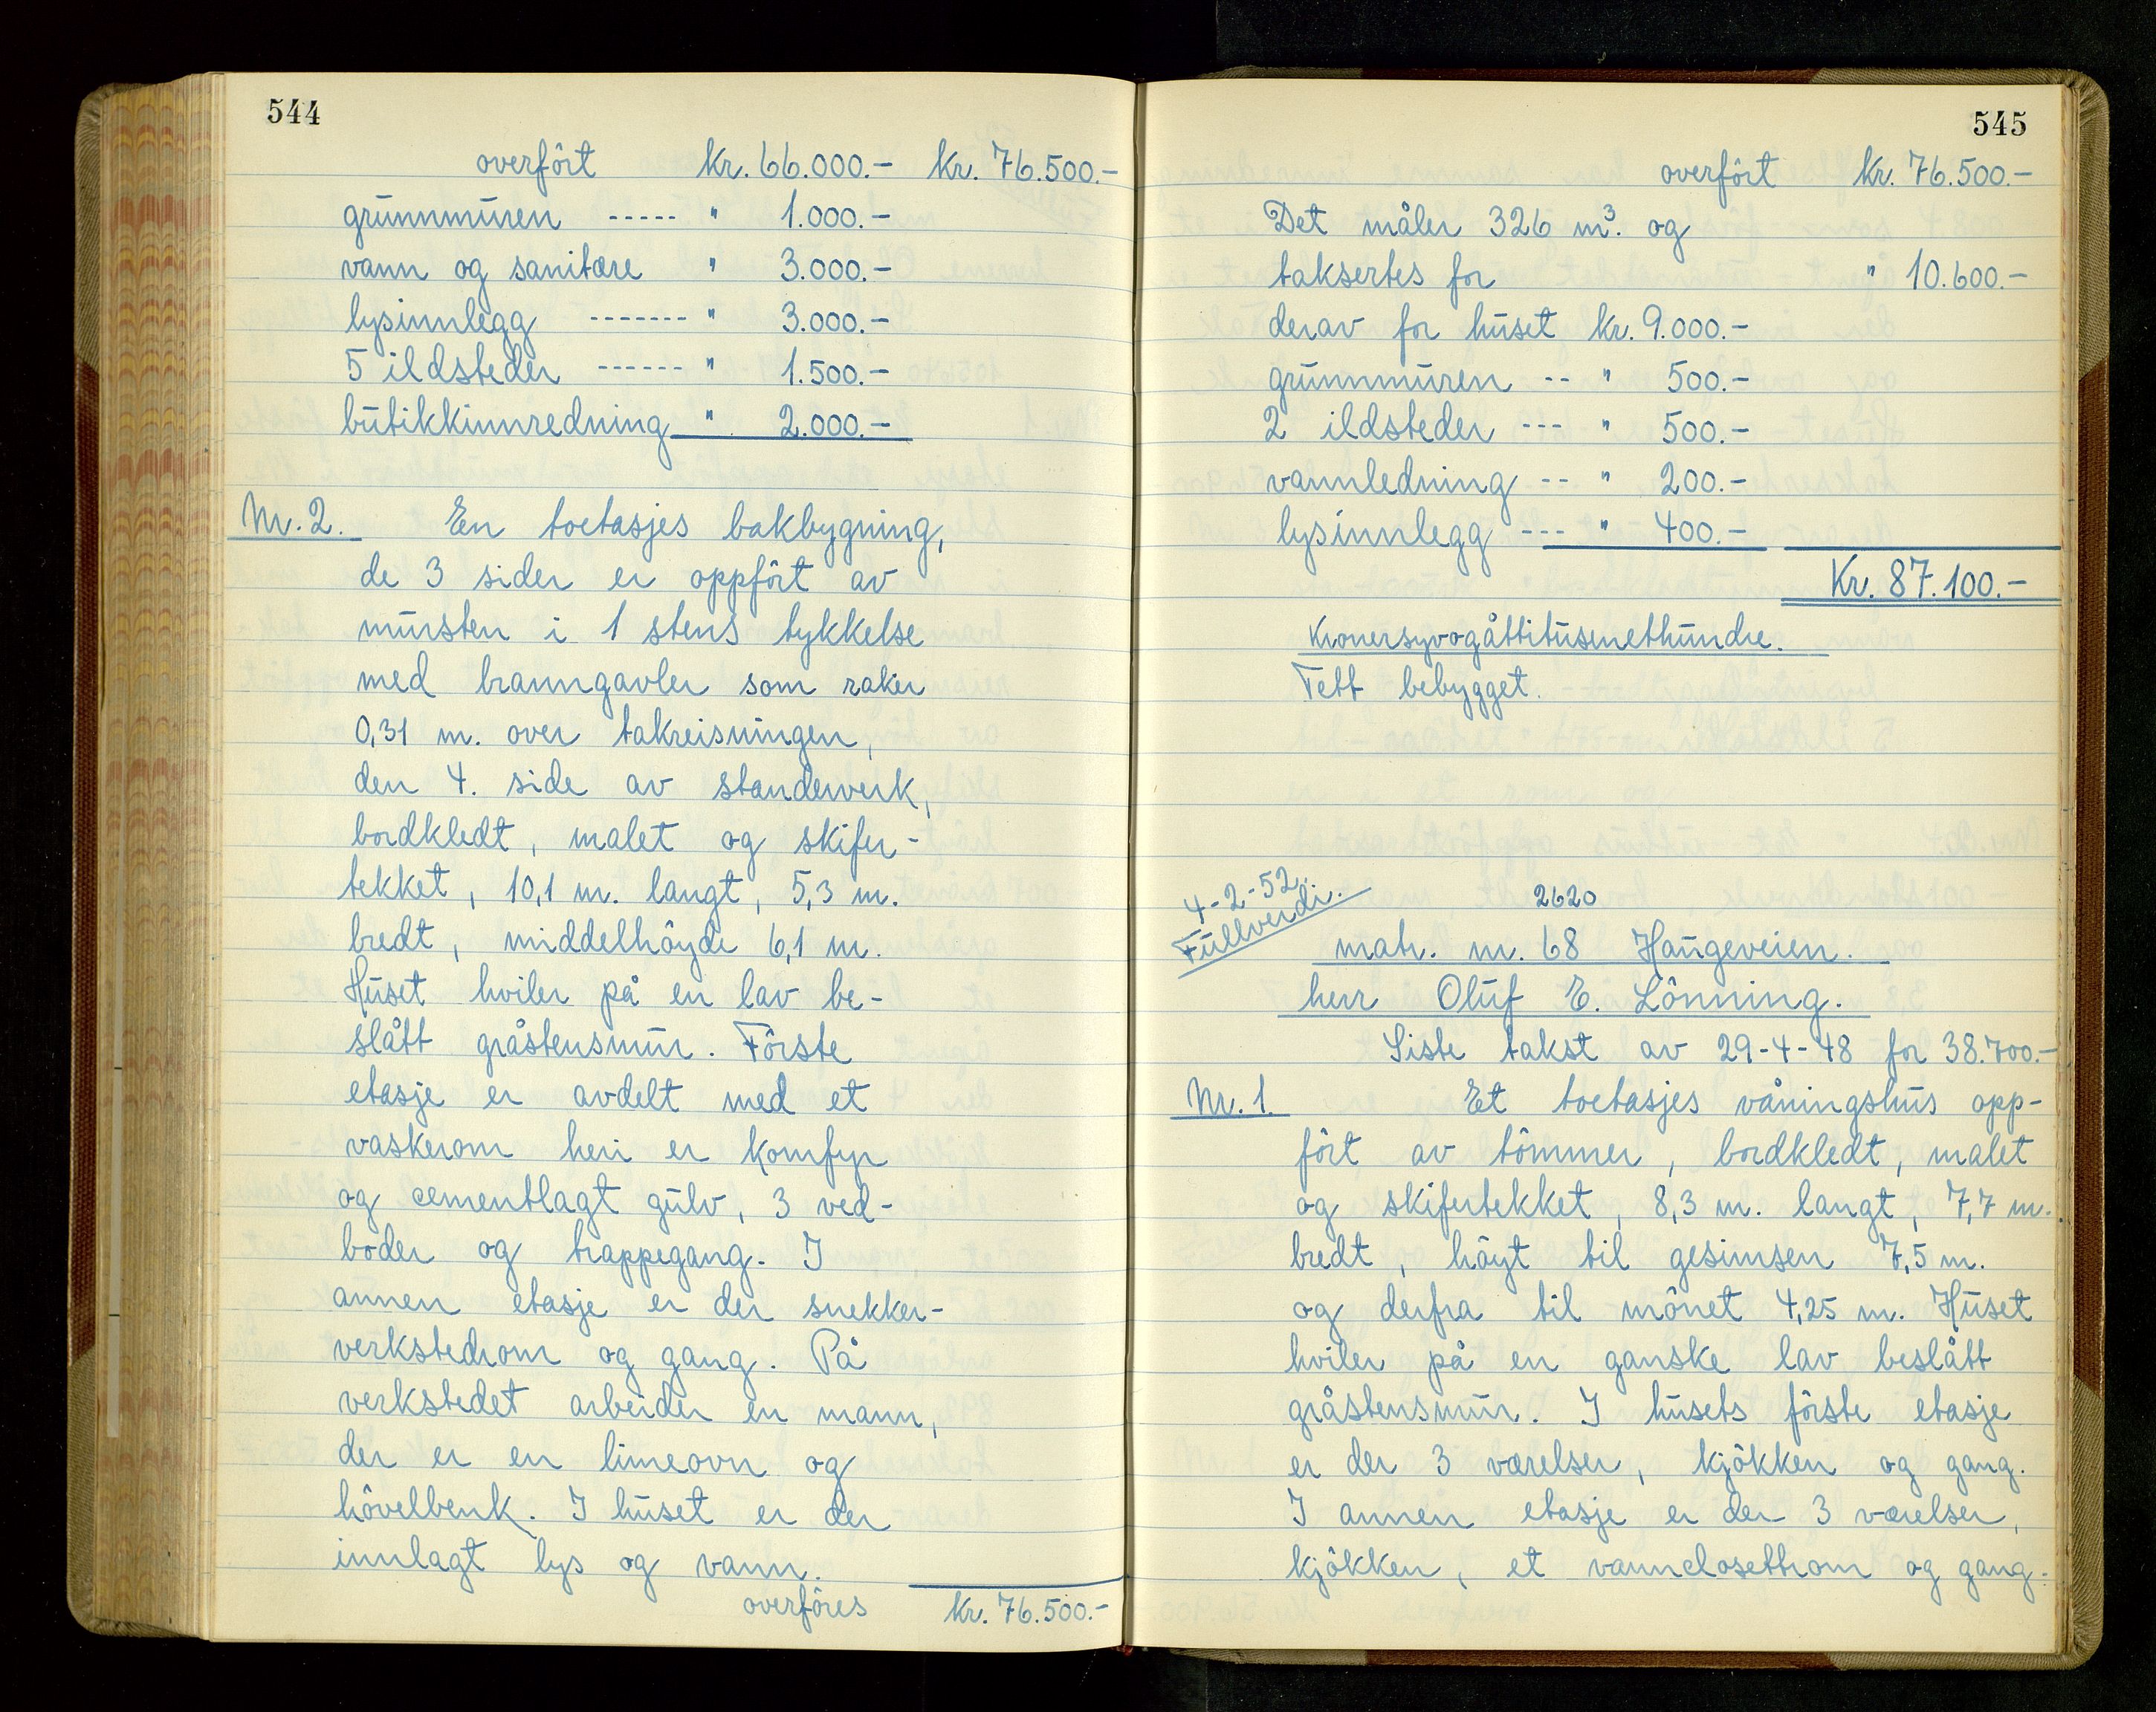 544
overfört kr. 66.000.- kr. 76.500.-
grunnmuren ----- " 1.000.-
vann og sanitære " 3.000.-
lysinnlegg ------- " 3.000.-
5 ildsteder ------ " 1.500.-
butikkinnredning " 2.000.-
Nr. 2. En toetasjes bakbygning,
de 3 sider er oppfört av
mursten i 1 stens tykkelse
med branngavler som raker
0,31 m. over takreisningen,
den 4. side av standerverk,
bordkledt, malet og skifer-
tekket, 10,1 m. langt, 5,3 m.
bredt, middelhöyde 6,1 m.
Huset hviler på en lav be-
slått gråstensmur. Förste
etasje er avdelt med et
vaskerom heri er komfyr
og cementlagt gulv, 3 ved-
boder og trappegang. I
annen etasje er der snekker-
verkstedrom og gang. På
verkstedet arbeider en mann,
der er en limeovn og
hövelbenk. I huset er der
innlagt lys og vann.
overföres kr. 76.500.-
545
overfört kr. 76.500.-
Det måler 326 m³. og
taksertes for " 10.600.-
derav for huset kr. 9.000.-
grunnmuren -- " 500.-
2 ildsteder --- " 500.-
vannledning -- " 200.-
lysinnlegg --- " 400.-
Kr. 87.100.-
Kronersyvogåttitusenethundre.
Tett bebygget.
4-2-52.
Fullverdi.
2620
matr. nr. 68 Haugeveien.
herr Oluf E. Lönning.
Siste takst av 29-4-48 for 38.700.-
Nr. 1. Et toetasjes våningshus opp-
fört av tömmer, bordkledt, malet
og skifertekket, 8,3 m. langt, 7,7 m.
bredt, höyt til gesimsen 7,5 m.
og derfra til mönet 4,25 m. Huset
hviler på en ganske lav beslått
gråstensmur. I husets förste etasje
er der 3 værelser, kjökken og gang.
I annen etasje er der 3 værelser,
kjökken, et vannclosettrom og gang.